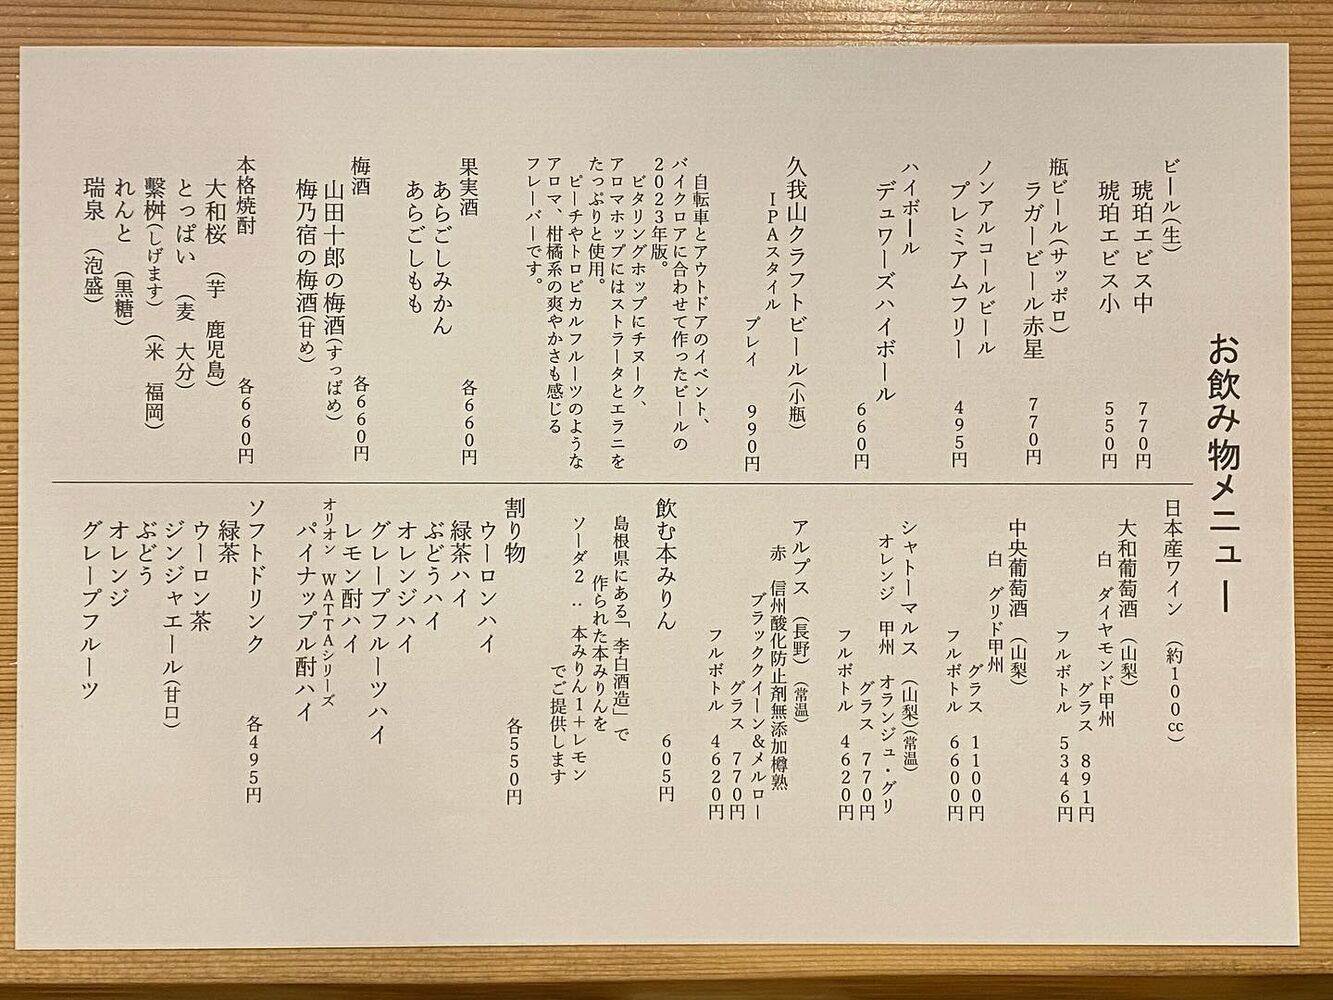 お飲み物メニュー
ビール(生)
琥珀エビス中 770円
琥珀エビス小 550円
瓶ビール(サッポロ)
ラガービール赤星 770円
ノンアルコールビール
プレミアムフリー 495円
ハイボール
デュワーズハイボール 660円
久我山クラフトビール(小瓶)
IPAスタイル
プレイ 990円
自転車とアウトドアのイベント、
バイクロアに合わせて作ったビールの
2023年版。
ビタリングホップにチヌーク、
アロマホップにはストラータとエラニを
たっぷりと使用。
ピーチやトロピカルフルーツのような
アロマ、柑橘系の爽やかさも感じる
フレーバーです。
果実酒 各660円
あらごしみかん
あらごしもも
梅酒 各660円
山田十郎の梅酒(すっぱめ)
梅乃宿の梅酒(甘め)
本格焼酎 各660円
大和桜 (芋 鹿児島)
とっぱい (麦 大分)
繫桝(しげます) (米 福岡)
れんと (黒糖)
瑞泉 (泡盛)
日本産ワイン (約100cc)
大和葡萄酒 (山梨)
白 ダイヤモンド甲州
グラス 891円
フルボトル 5346円
中央葡萄酒 (山梨)
白 グリド甲州
グラス 1100円
フルボトル 6600円
シャトーマルス (山梨)(常温)
オレンジ 甲州 オランジュ・グリ
グラス 770円
フルボトル 4620円
アルプス (長野) (常温)
赤 信州酸化防止剤無添加樽熟
ブラッククイーン&メルロー
グラス 770円
フルボトル 4620円
飲む本みりん 605円
島根県にある「李白酒造」で
作られた本みりんを
ソーダ2:本みりん1+レモン
でご提供します
割り物 各550円
ウーロンハイ
緑茶ハイ
ぶどうハイ
オレンジハイ
グレープフルーツハイ
レモン酎ハイ
オリオン WATTAシリーズ
パイナップル酎ハイ
ソフトドリンク 各495円
緑茶
ウーロン茶
ジンジャエール(甘口)
ぶどう
オレンジ
グレープフルーツ